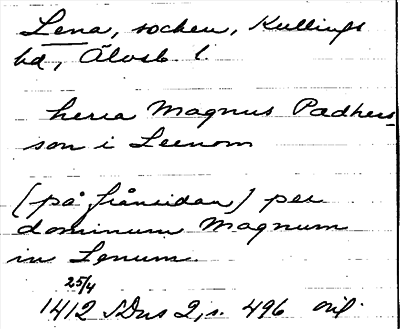 Lena, socken, Kullings
hd, Älvsb l.
herra Magnus Padhers-
son i Leenom
(på frånsidan) per
dominum Magnum
in Lenum.
25/4
1412 SDns 2, s. 496 oril